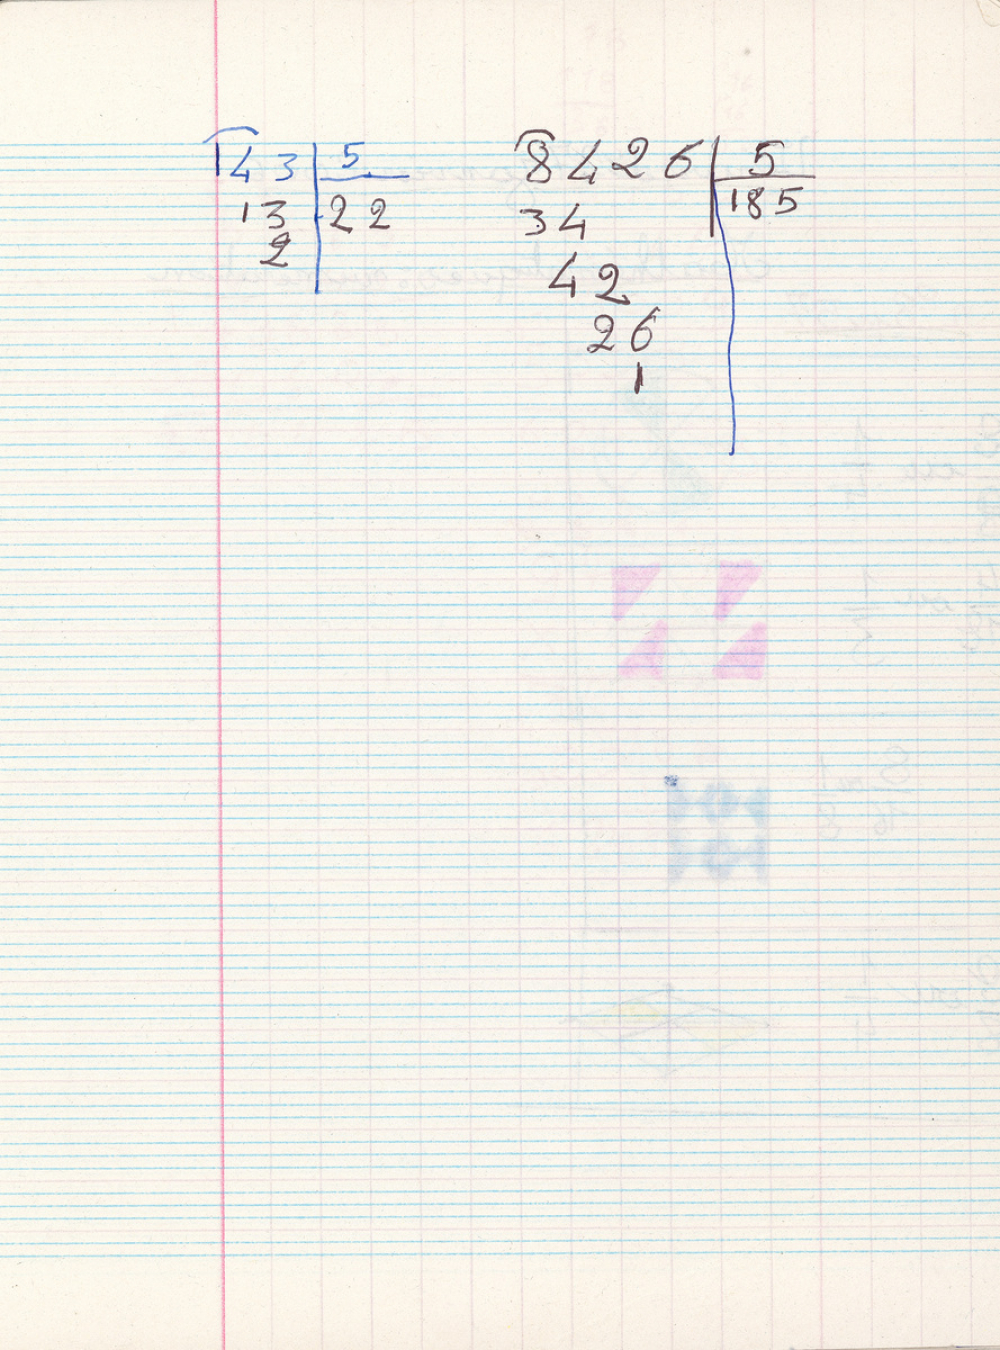 143 5
13 22
2
8426 5
34 185
42
26
1